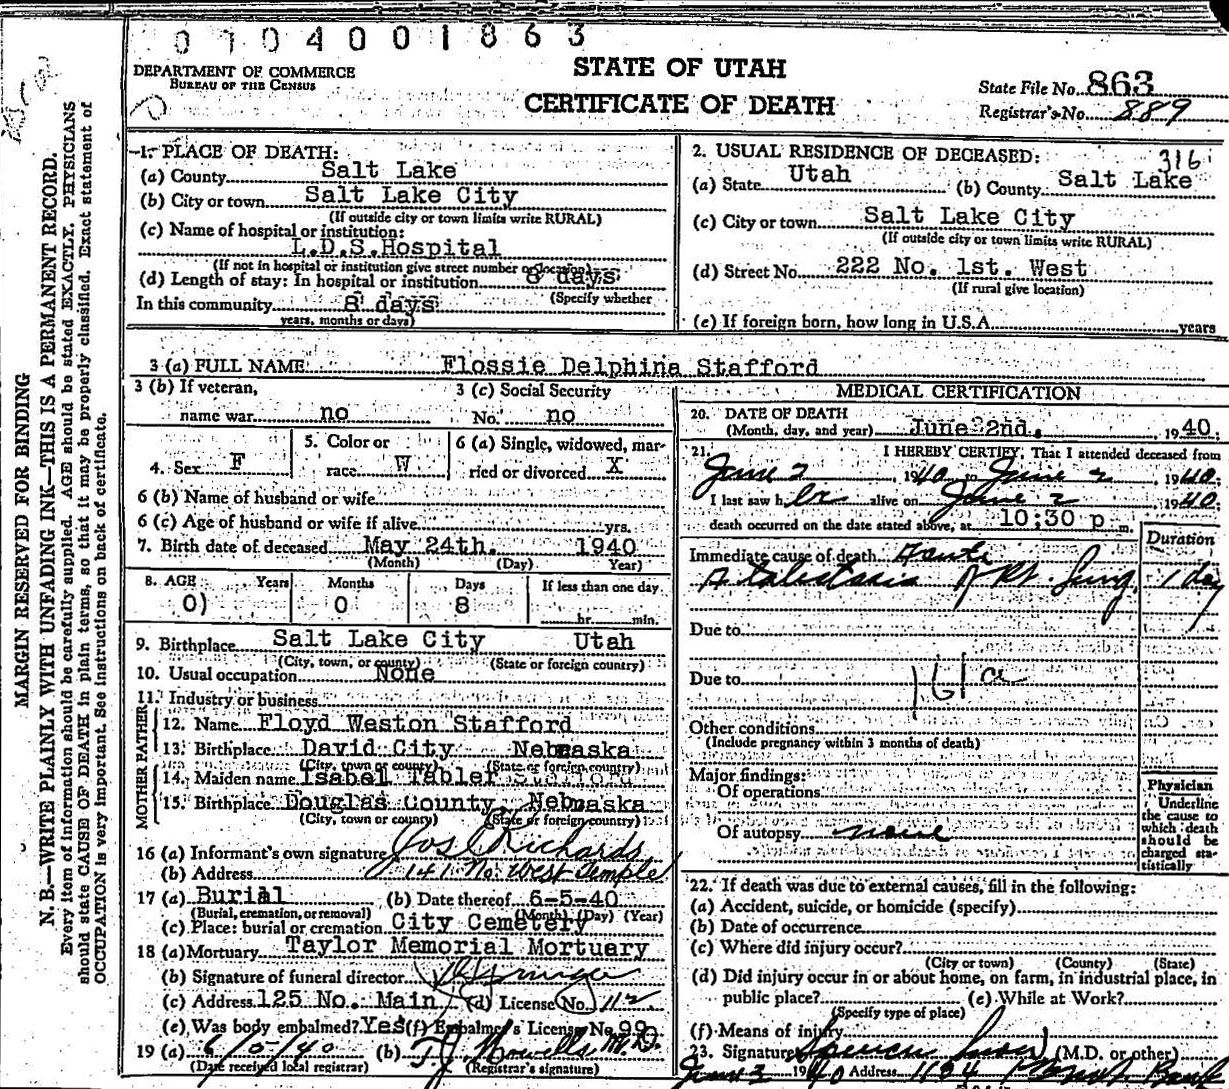 0104001863
DEPARTMENT OF COMMERCE
BUREAU OF THE CENSUS
STATE OF UTAH
CERTIFICATE OF DEATH
State File No. 863
Registrar's No. 889
MARGIN RESERVED FOR BINDING
N. B.—WRITE PLAINLY WITH UNFADING INK—THIS IS A PERMANENT RECORD.
Every item of information should be carefully supplied. AGE should be stated EXACTLY. PHYSICIANS
should state CAUSE OF DEATH in plain terms, so that it may be properly classified. Exact statement of
OCCUPATION is very important. See instructions on back of certificate.
1. PLACE OF DEATH:
(a) County Salt Lake
(b) City or town Salt Lake City
(If outside city or town limits write RURAL)
(c) Name of hospital or institution:
L.D.S.Hospital
(If not in hospital or institution give street number or location)
(d) Length of stay: In hospital or institution 8 days
(Specify whether
In this community 8 days
years, months or days)
2. USUAL RESIDENCE OF DECEASED: 316
(a) State Utah (b) County Salt Lake
(c) City or town Salt Lake City
(If outside city or town limits write RURAL)
(d) Street No. 222 No. 1st. West
(If rural give location)
(e) If foreign born, how long in U.S.A. years
3 (a) FULL NAME Flossie Delphina Stafford
3 (b) If veteran,
name war no
3 (c) Social Security
No. no
4. Sex F
5. Color or
race W
6 (a) Single, widowed, mar-
ried or divorced X
6 (b) Name of husband or wife
6 (c) Age of husband or wife if alive yrs.
7. Birth date of deceased May 24th. 1940
(Month) (Day) Year)
8. AGE Years Months Days If less than one day
0) 0 8 hr. min.
9. Birthplace Salt Lake City Utah
(City, town, or county) (State or foreign country)
10. Usual occupation None
11. Industry or business
FATHER
12. Name Floyd Weston Stafford
13. Birthplace David City Nebraska
(City, town or county) (State or foreign country)
MOTHER
14. Maiden name Isabel Tabler
15. Birthplace Douglas County, Nebraska
(City, town or county) (State or foreign country)
16 (a) Informant's own signature Jos Richards
(b) Address 141 No. West Temple
17 (a) Burial (b) Date thereof 6-5-40
(Burial, cremation, or removal) (Month) (Day) (Year)
(c) Place: burial or cremation City Cemetery
18 (a) Mortuary Taylor Memorial Mortuary
(b) Signature of funeral director
(c) Address 125 No. Main (d) License No. 112
(e) Was body embalmed? Yes (f) Embalmer's License No. 99
19 (a) 6/5/40 (b) T.J. Howells M.D.
(Date received local registrar) (Registrar's signature)
MEDICAL CERTIFICATION
20. DATE OF DEATH
(Month, day, and year) June 2nd. , 1940.
21. I HEREBY CERTIFY, That I attended deceased from
June 2 , 1940 to June 2 , 1940;
I last saw her alive on June 2 , 1940;
death occurred on the date stated above, at 10:30 p m.
Duration
Immediate cause of death Acute
Atalectasis of Rt. Lung. 1 day
Due to
Due to 161a
Other conditions
(Include pregnancy within 3 months of death)
Major findings:
Of operations
Of autopsy none
Physician
Underline
the cause to
which death
should be
charged sta-
tistically
22. If death was due to external causes, fill in the following:
(a) Accident, suicide, or homicide (specify)
(b) Date of occurrence
(c) Where did injury occur?
(City or town) (County) (State)
(d) Did injury occur in or about home, on farm, in industrial place, in
public place? (e) While at Work?
(Specify type of place)
(f) Means of injury
23. Signature Spencer (M.D. or other)
June 3 1940 Address